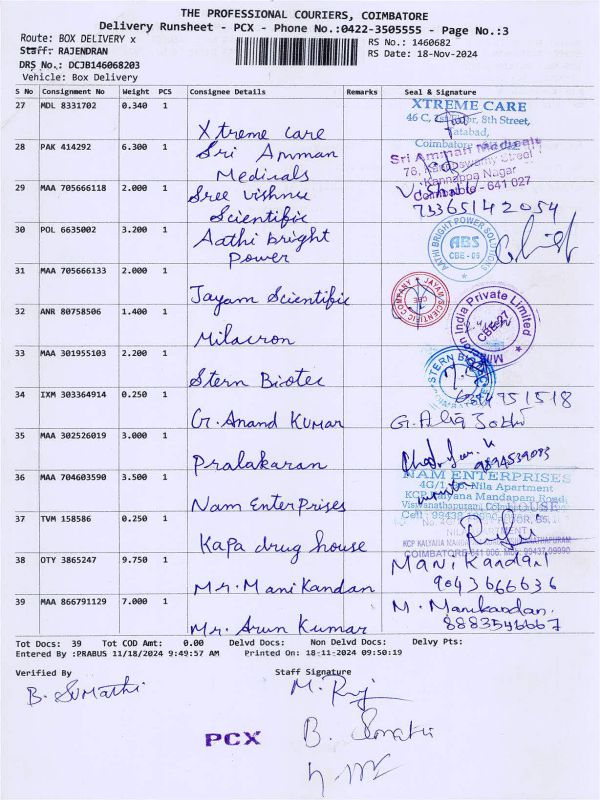 THE PROFESSIONAL COURIERS, COIMBATORE
Delivery Runsheet - PCX - Phone No.:0422-3505555 - Page No.:3
Route: BOX DELIVERY x
RS No.: 1460682
Staff: RAJENDRAN
RS Date: 18-Nov-2024
DRS No.: DCJB146068203
Vehicle: Box Delivery
S No Consignment No Weight PCS Consignee Details Remarks Seal & Signature
27 MDL 8331702 0.340 1 Xtreme care
XTREME CARE
46 C, 1st Floor, 8th Street,
Tatabad,
Coimbatore
28 PAK 414292 6.300 1 Sri Amman
Medicals
Sri Amman Medicals
Kannappa Nagar
Coimbatore - 641 027
29 MAA 705666118 2.000 1 Sree Vishnu
Scientific
73365142054
30 POL 6635002 3.200 1 Aathi bright
power
AATHI BRIGHT POWER SOLUTIONS
ABS
CBE-06
31 MAA 705666133 2.000 1 Jayam Scientific
JAYAM SCIENTIFIC COMPANY
CBE
32 ANR 80758506 1.400 1 Milacron
India Private Limited
CBE-27
33 MAA 301955103 2.200 1 Stern Biotec
34 IXM 303364914 0.250 1 G. Anand Kumar
35 MAA 302526019 3.000 1 Pralakaran
9894539083
36 MAA 704603590 3.500 1 Nam Enterprises
NAM ENTERPRISES
4G/1, Nila Apartment
KCP Kalyana Mandapam Road,
Viswanathapuram, Coimbatore
37 TVM 158586 0.250 1 Kapa drug house
COIMBATORE-641 006.
38 OTY 3865247 9.750 1 Mr. Mani Kandan
Manikandan
9043666636
39 MAA 866791129 7.000 1 Mr. Arun Kumar
M. Manikandan.
8883546667
Tot Docs: 39 Tot COD Amt: 0.00 Delvd Docs: Non Delvd Docs: Delvy Pts:
Entered By :PRABUS 11/18/2024 9:49:57 AM Printed On: 18-11-2024 09:50:19
Verified By
Staff Signature
B. Sumathi
M. Raj
PCX